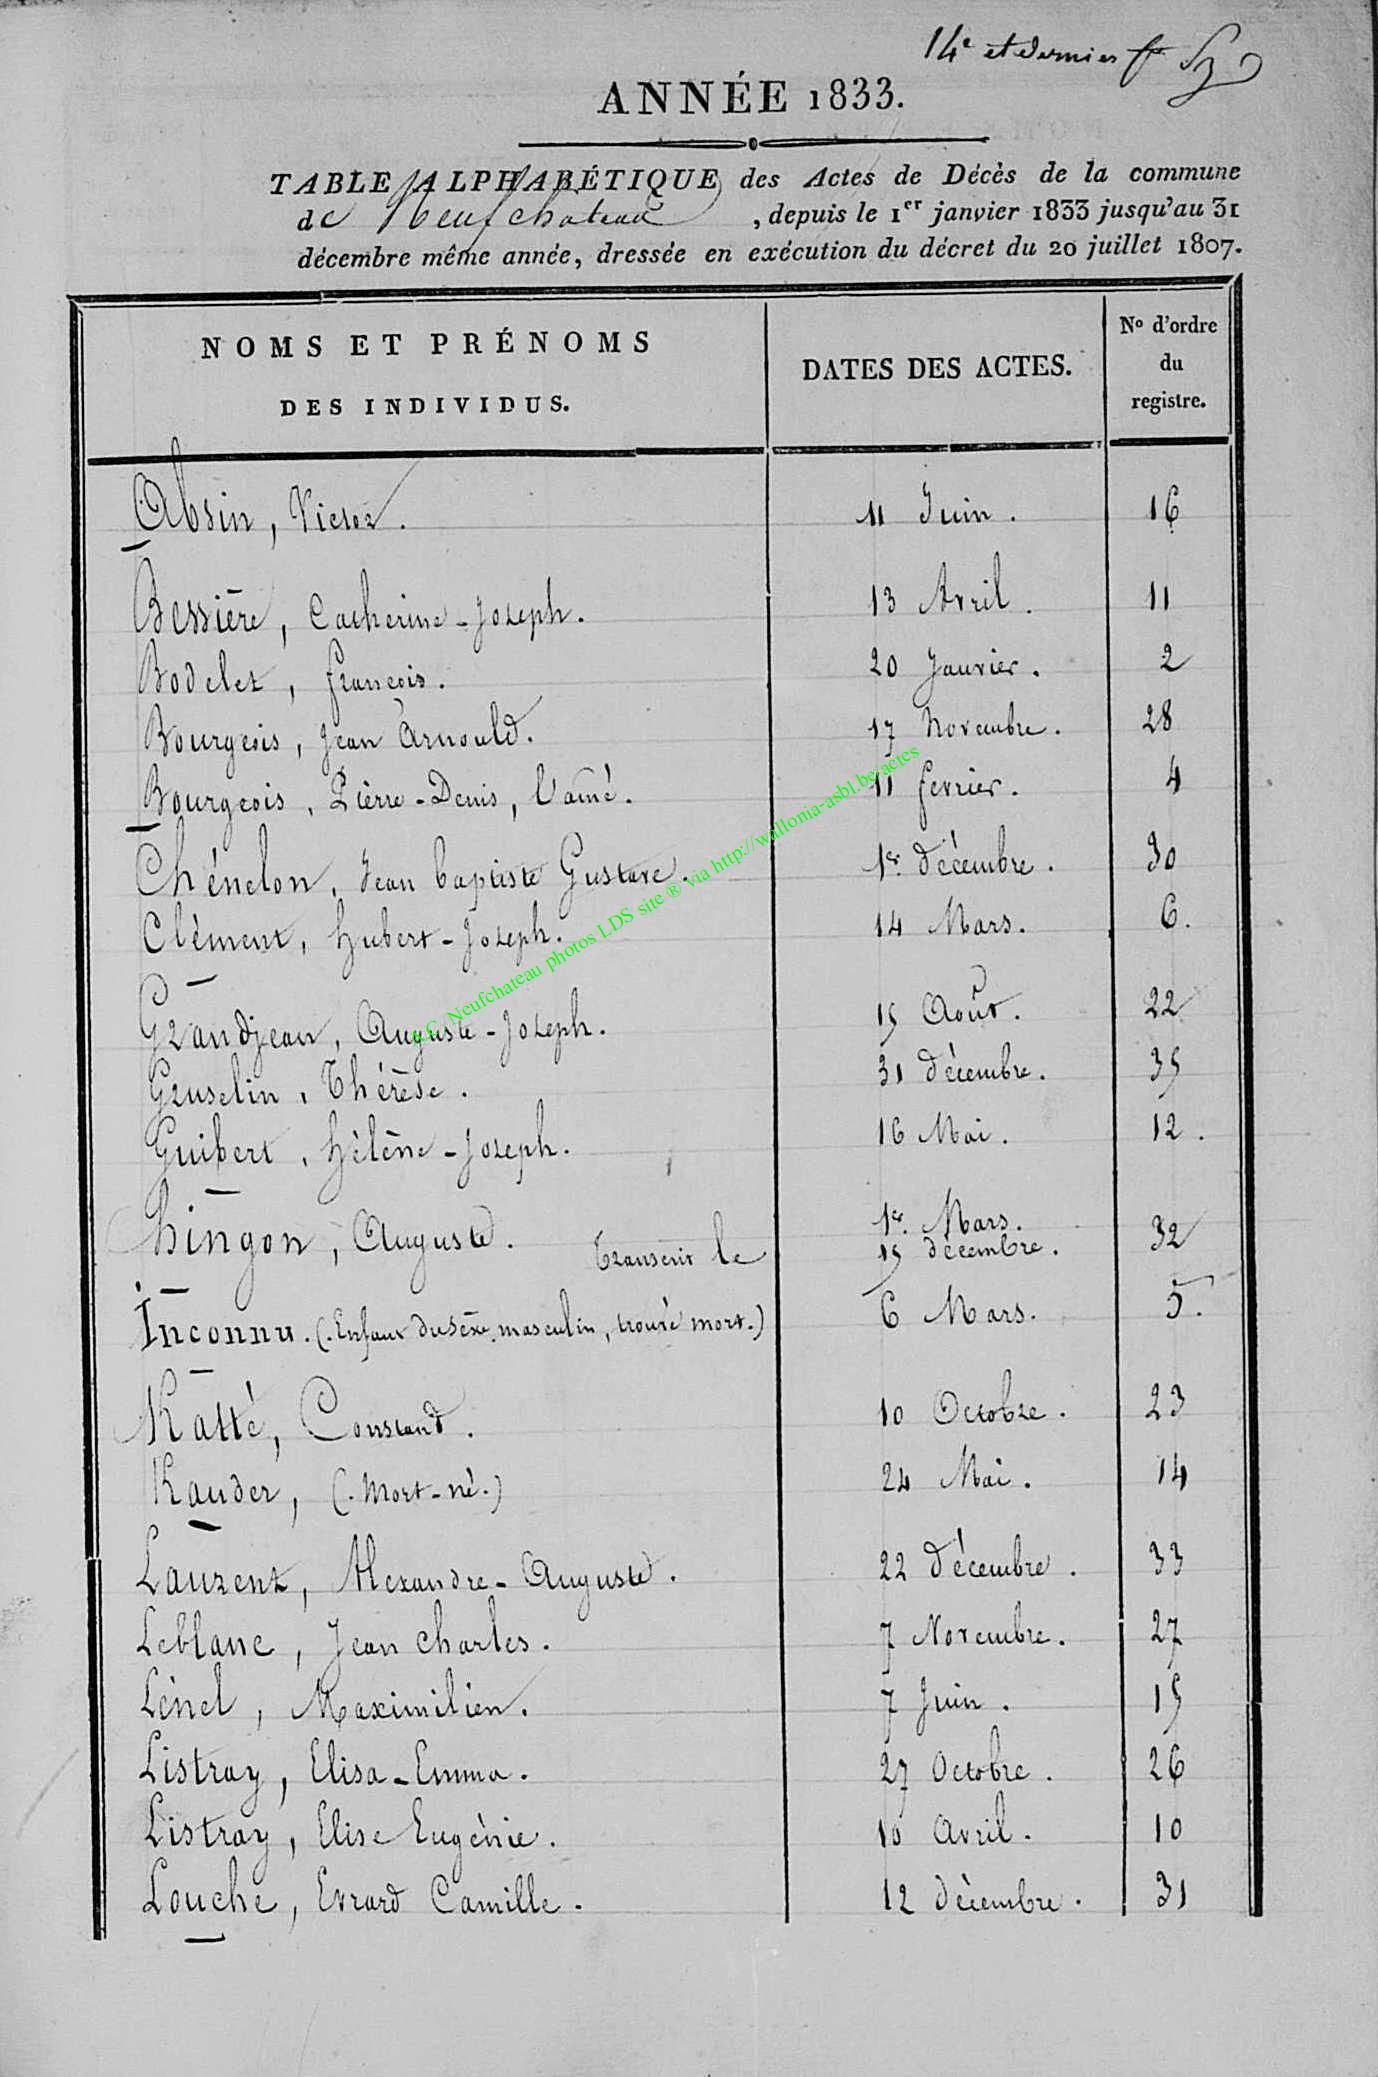 14e et dernier f
ANNÉE 1833.
TABLE ALPHABÉTIQUE des Actes de Décès de la commune
de Neufchateau, depuis le 1er janvier 1833 jusqu'au 31
décembre même année, dressée en exécution du décret du 20 juillet 1807.
NOMS ET PRÉNOMS
DES INDIVIDUS.
DATES DES ACTES.
No d'ordre
du
registre.
Absin, Victor. 11 Juin. 16
Bessière, Catherine-Joseph. 13 Avril. 11
Bodelet, françois. 20 Janvier. 2
Bourgeois, Jean Arnould. 17 Novembre. 28
Bourgeois, Pierre-Denis, l'aîné. 11 fevrier. 4
Chénelon, Jean baptiste Gustave. 1er décembre. 30
Clément, hubert-Joseph. 14 Mars. 6.
Grandjean, Auguste-Joseph. 15 Août. 22
Gruselin, Thérèse. 31 décembre. 35
Guibert, hélène-Joseph. 16 Mai. 12.
hingon, Auguste. Transcrit le 1er. Mars. 15 décembre. 32
Inconnu. (Enfant du sèxe masculin, trouvé mort.) 6 Mars. 5.
Katté, Constant. 10 Octobre. 23
Kauder, (Mort-né.) 24 Mai. 14
Laurent, Alexandre-Auguste. 22 décembre. 33
Leblanc, Jean charles. 7 Novembre. 27
Lénel, Maximilien. 7 Juin. 15
Listray, Elisa-Emma. 27 Octobre. 26
Listray, Elise Eugénie. 10 Avril. 10
Louche, Evrard Camille. 12 décembre. 31
Neufchateau photos LDS site ® via http://wallonia-asbl.be/actes